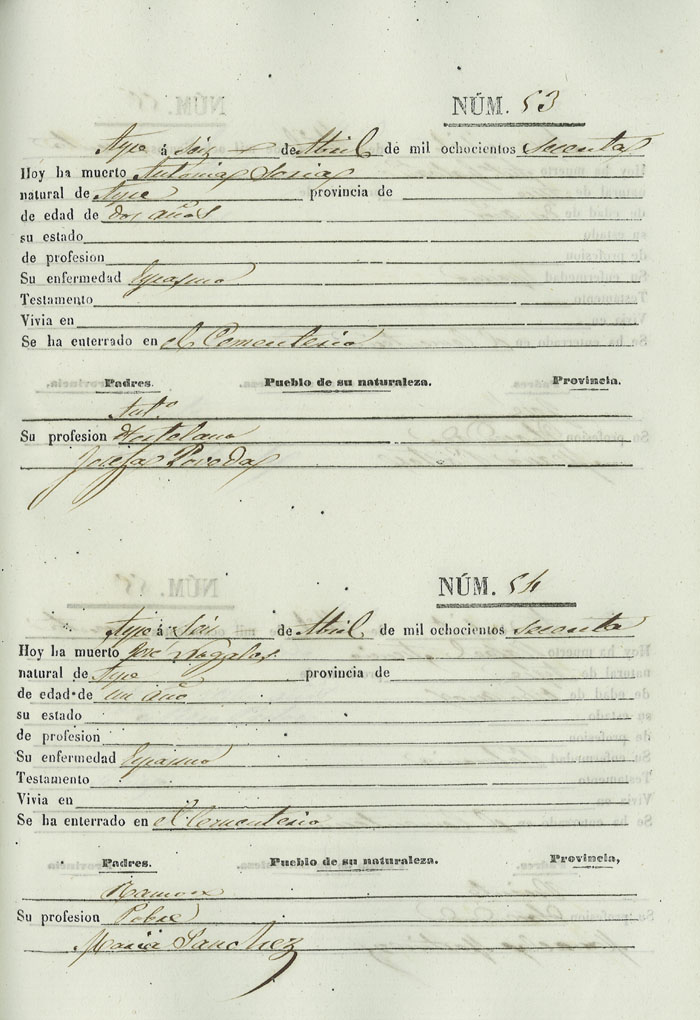 NÚM. 53
Aspe á seis de Abril de mil ochocientos sesenta
Hoy ha muerto Antonia Soria
natural de Aspe provincia de
de edad de dos años
su estado
de profesion
Su enfermedad Espasmo
Testamento
Vivia en
Se ha enterrado en el Cementerio
Padres. Pueblo de su naturaleza. Provincia.
Antº
Su profesion Hortelano
Josefa Poveda
NÚM. 54
Aspe á seis de Abril de mil ochocientos sesenta
Hoy ha muerto José
natural de Aspe provincia de
de edad de un año
su estado
de profesion
Su enfermedad Espasmo
Testamento
Vivia en
Se ha enterrado en el Cementerio
Padres. Pueblo de su naturaleza. Provincia,
Ramon
Su profesion Pobre
Maria Sanchez